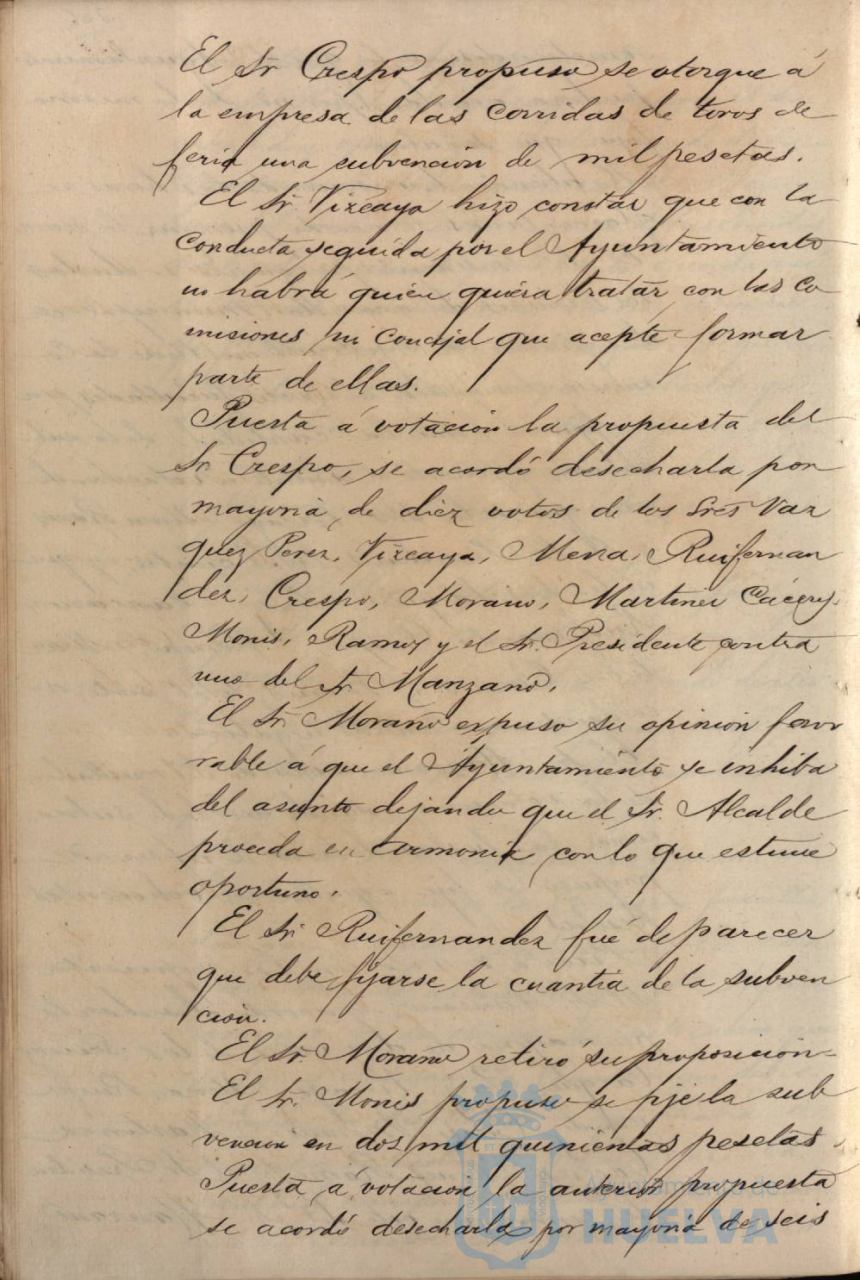 El Sr Crespo propuso se otorgue á
la empresa de las corridas de toros de
feria una subvención de mil pesetas.
El Sr. Vizcaya hizo constar que con la
conducta seguida por el Ayuntamiento
no habrá quien quiera tratar con las co
misiones ni concejal que acepte formar
parte de ellas.
Puesta á votación la propuesta del
Sr Crespo, se acordó desecharla por
mayoria de diez votos de los Sres Vaz
quez Perez, Vizcaya, Mena, Ruifernan
dez, Crespo, Morano, Martinez Cáceres,
Monis, Ramos y el Sr. Presidente contra
uno del Sr Manzano.
El Sr Morano expuso su opinión favo
rable á que el Ayuntamiento se inhiba
del asunto dejando que el Sr. Alcalde
proceda en armonia con lo que estime
oportuno.
El Sr Ruifernandez fué de parecer
que debe fijarse la cuantía de la subven
ción.
El Sr. Morano retiró su proposición
El Sr. Monis propuso se fije la sub
vencion en dos mil quinientas pesetas
Puesta á votacion la anterior propuesta
se acordó desecharla por mayoria de seis
Ayuntamiento de
HUELVA